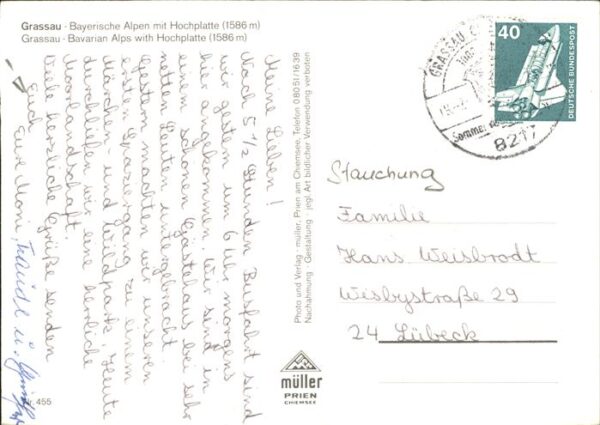 Grassau - Bayerische Alpen mit Hochplatte (1586 m)
Grassau - Bavarian Alps with Hochplatte (1586 m)
Meine Lieben!
Nach 5 1/2 Stunden Busfahrt sind
wir gestern um 6 Uhr morgens
hier angekommen. Wir sind in
einem schönen Gästehaus bei sehr
netten Leuten untergebracht.
Gestern machten wir unseren
ersten Spaziergang zu einem
Märchen- und Wildpark. Heute
durchliefen wir eine herrliche
Moorlandschaft.
Viele herzliche Grüße senden
Euch
Eure Moni,
Photo und Verlag · müller, Prien am Chiemsee, Telefon 08051/1639
Nachahmung - Gestaltung - jegl. Art bildlicher Verwendung verboten
müller
PRIEN
CHIEMSEE
455
GRASSAU
Sommer
8217
40
DEUTSCHE BUNDESPOST
Stauchung
Familie
Hans Weisbrodt
Wisbystraße 29
24 Lübeck